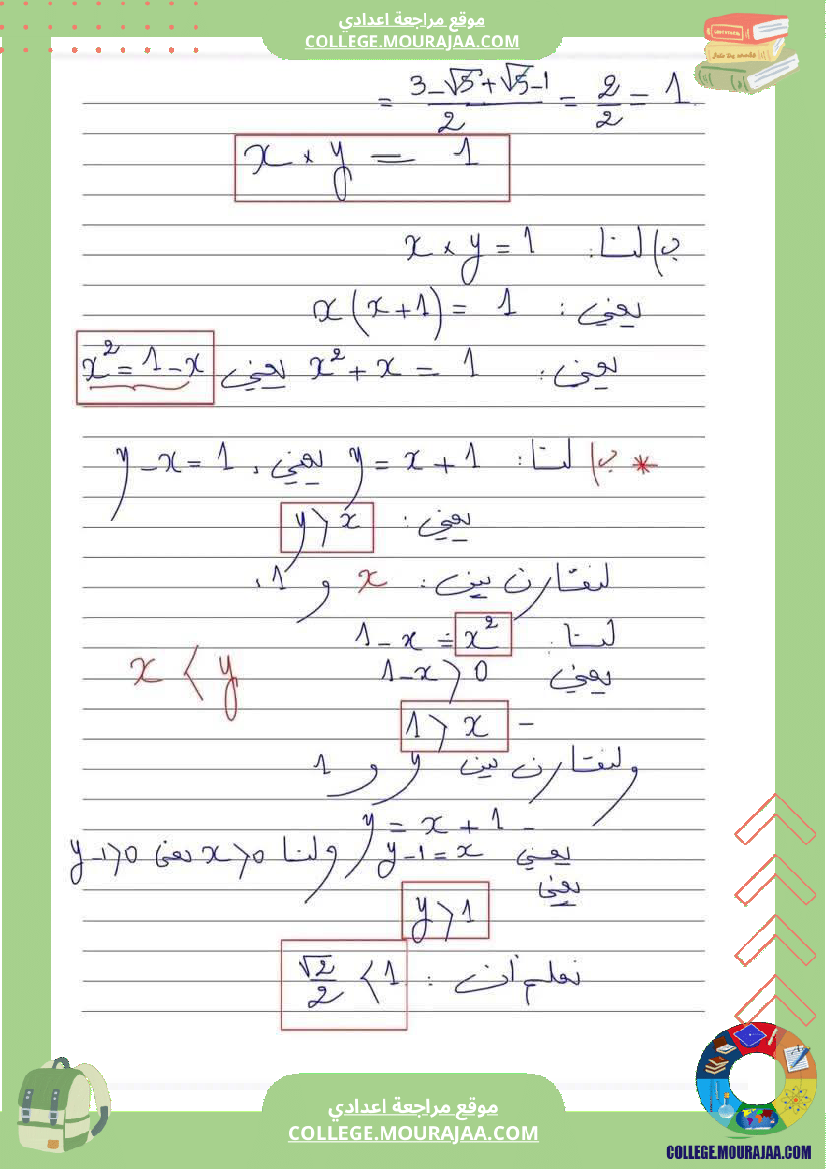 موقع مراجعة اعدادي
COLLEGE.MOURAJAA.COM
= (3-√5+√5-1)/2 = 2/2 = 1
x × y = 1
ب) لنا: x × y = 1
يعني: x(x+1) = 1
يعني: x² + x = 1 يعني x² = 1-x
* ب) لنا: y = x + 1 يعني, y - x = 1
يعني: y > x
لنقارن بين: x و 1,
لنا: 1 - x = x²
يعني 1 - x > 0
- 1 > x
x < y
ولنقارن بين y و 1
y = x + 1 -
يعني y-1 = x ولنا x > 0 يعني y-1 > 0
يعني
y > 1
نعلم أن: √2/2 < 1
موقع مراجعة اعدادي
COLLEGE.MOURAJAA.COM
COLLEGE.MOURAJAA.COM